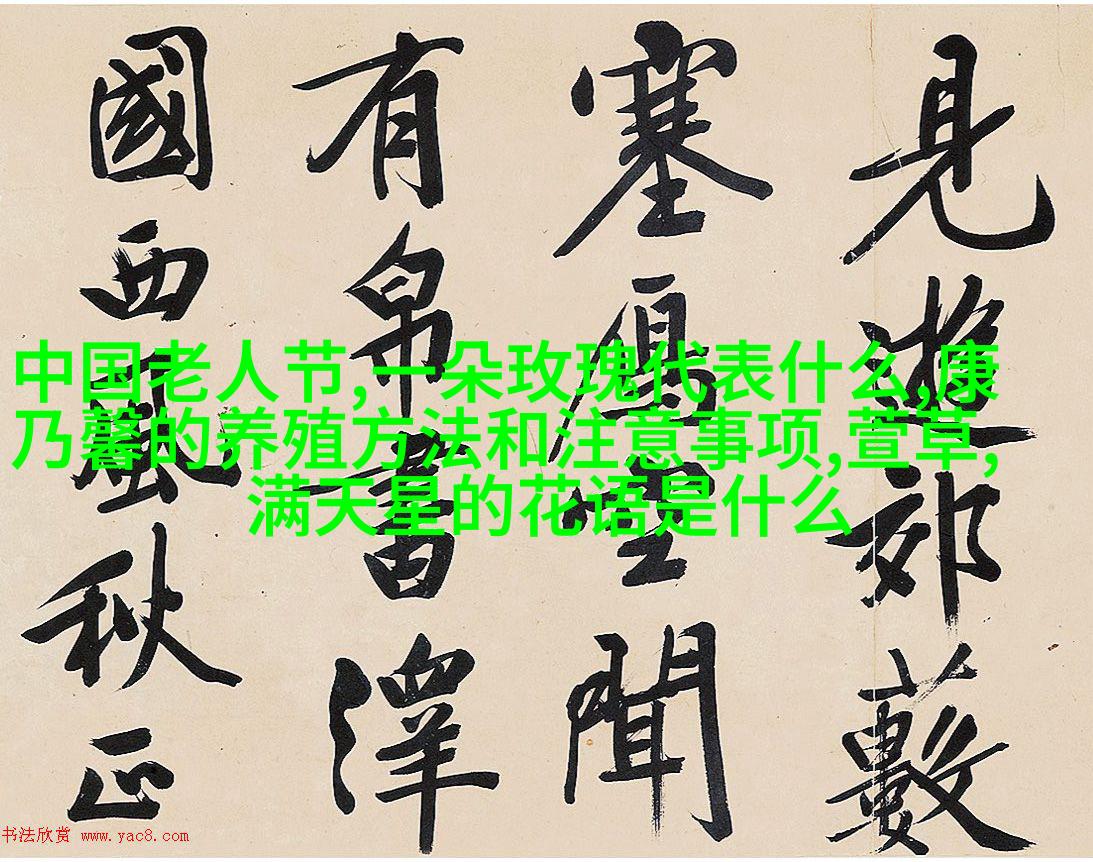 見遊郊藪
塞鴈空聞
有帛書澤
國西風秋正
中国老人节,一朵玫瑰代表什么,康
乃馨的养殖方法和注意事项,萱草,
满天星的花语是什么
书法欣赏 www.yac8.com